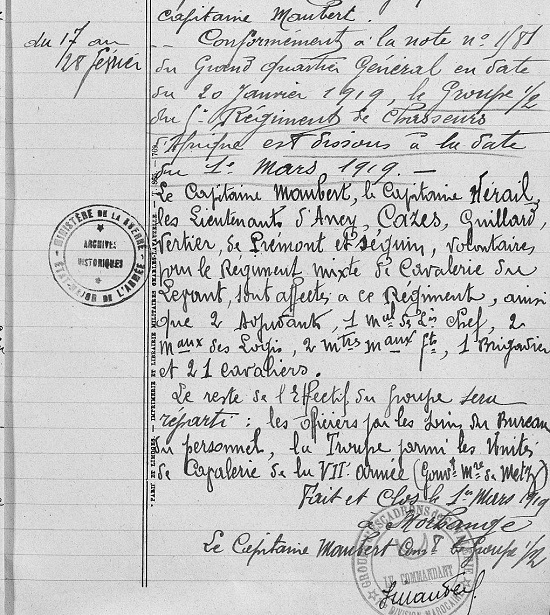 capitaine Maubert.
du 17 au
28 février
-- Conformément à la note n° 1/81
du Grand quartier Général en date
du 20 Janvier 1919, le Groupe 1/2
du Régiment de Chasseurs
d'Afrique est dissous à la date
du 1er Mars 1919. —
Le Capitaine Maubert, le Capitaine Hérail,
les Lieutenants d'Aney, Cazes, Guillard,
Pertier, de Premont et Séguin, volontaires
pour le Régiment mixte de Cavalerie du
Levant, sont affectés à ce Régiment, ainsi
que 2 Adjudants, 1 mal des Lis Chef, 2
Maux des Logis, 2 mtres maux fts, 1 Brigadier
et 21 cavaliers.
Le reste de l'Effectif du groupe sera
réparti : les officiers par les soins du Bureau
du personnel, la Troupe parmi les Unités
de Cavalerie de la VIIe armée (Gouvt Mre de Metz)
Fait et Clos le 1er Mars 1919
à Morhange
Le Capitaine Maubert Comt le Groupe 1/2
Maubert
MINISTÈRE DE LA GUERRE
ARCHIVES
HISTORIQUES
ETAT-MAJOR DE L'ARMÉE
LE COMMANDANT
DIVISION MAROCAINE
PARIS ET LIMOGES. — IMPRIMERIE ET LIBRAIRIE MILITAIRES CHARLES-LAVAUZELLE